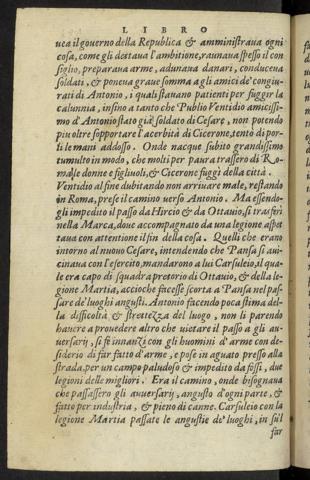 LIBRO
uea il gouerno della Republica & amministraua ogni
cosa, come gli dettaua l'ambitione, raunaua spesso il con
siglio, preparaua arme, adunaua danari, conduceua
soldati, & poneua graue somma a gli amici de' congiu-
rati di Antonio, i quali stauano patienti per fuggir la
calunnia, insino a tanto che Publio Ventidio amicissi-
mo d'Antonio stato già soldato di Cesare, non potendo
piu oltre sopportare l'acerbità di Cicerone, tentò di por-
ti le mani addosso. Onde nacque subito grandissimo
tumulto in modo, che molti per paura trassero di Ro-
ma le donne e figliuoli, & Cicerone fuggì della città.
Ventidio al fine dubitando non arriuare male, restando
in Roma, prese il camino verso Antonio. Ma essendo-
gli impedito il passo da Hircio & da Ottauio, si trasferì
nella Marca, doue accompagnato da una legione aspet
taua con attentione il fin della cosa. Quelli che erano
intorno al nuouo Cesare, intendendo che Pansa s'aui-
cinaua con l'esercito, mandarono a lui Carsuleio, il qua-
le era capo di squadra pretorio di Ottauio, & della le-
gione Martia, accioche facesse scorta a Pansa nel pas-
sare de' luoghi angusti. Antonio facendo poca stima del-
la difficoltà & strettezza del luogo, non li parendo
hauere a prouedere altro che uietare il passo a gli au-
uersarij, si fè innanzi con gli huomini d'arme con de-
siderio di far fatto d'arme, e pose in aguato presso alla
strada, per un campo paludoso & impedito da fossi, due
legioni delle migliori. Era il camino, onde bisognaua
che passassero gli auuersarij, angusto d'ogni parte, &
fatto per industria, & pieno di canne. Carsuleio con la
legione Martia passate le angustie de' luoghi, in sul
far